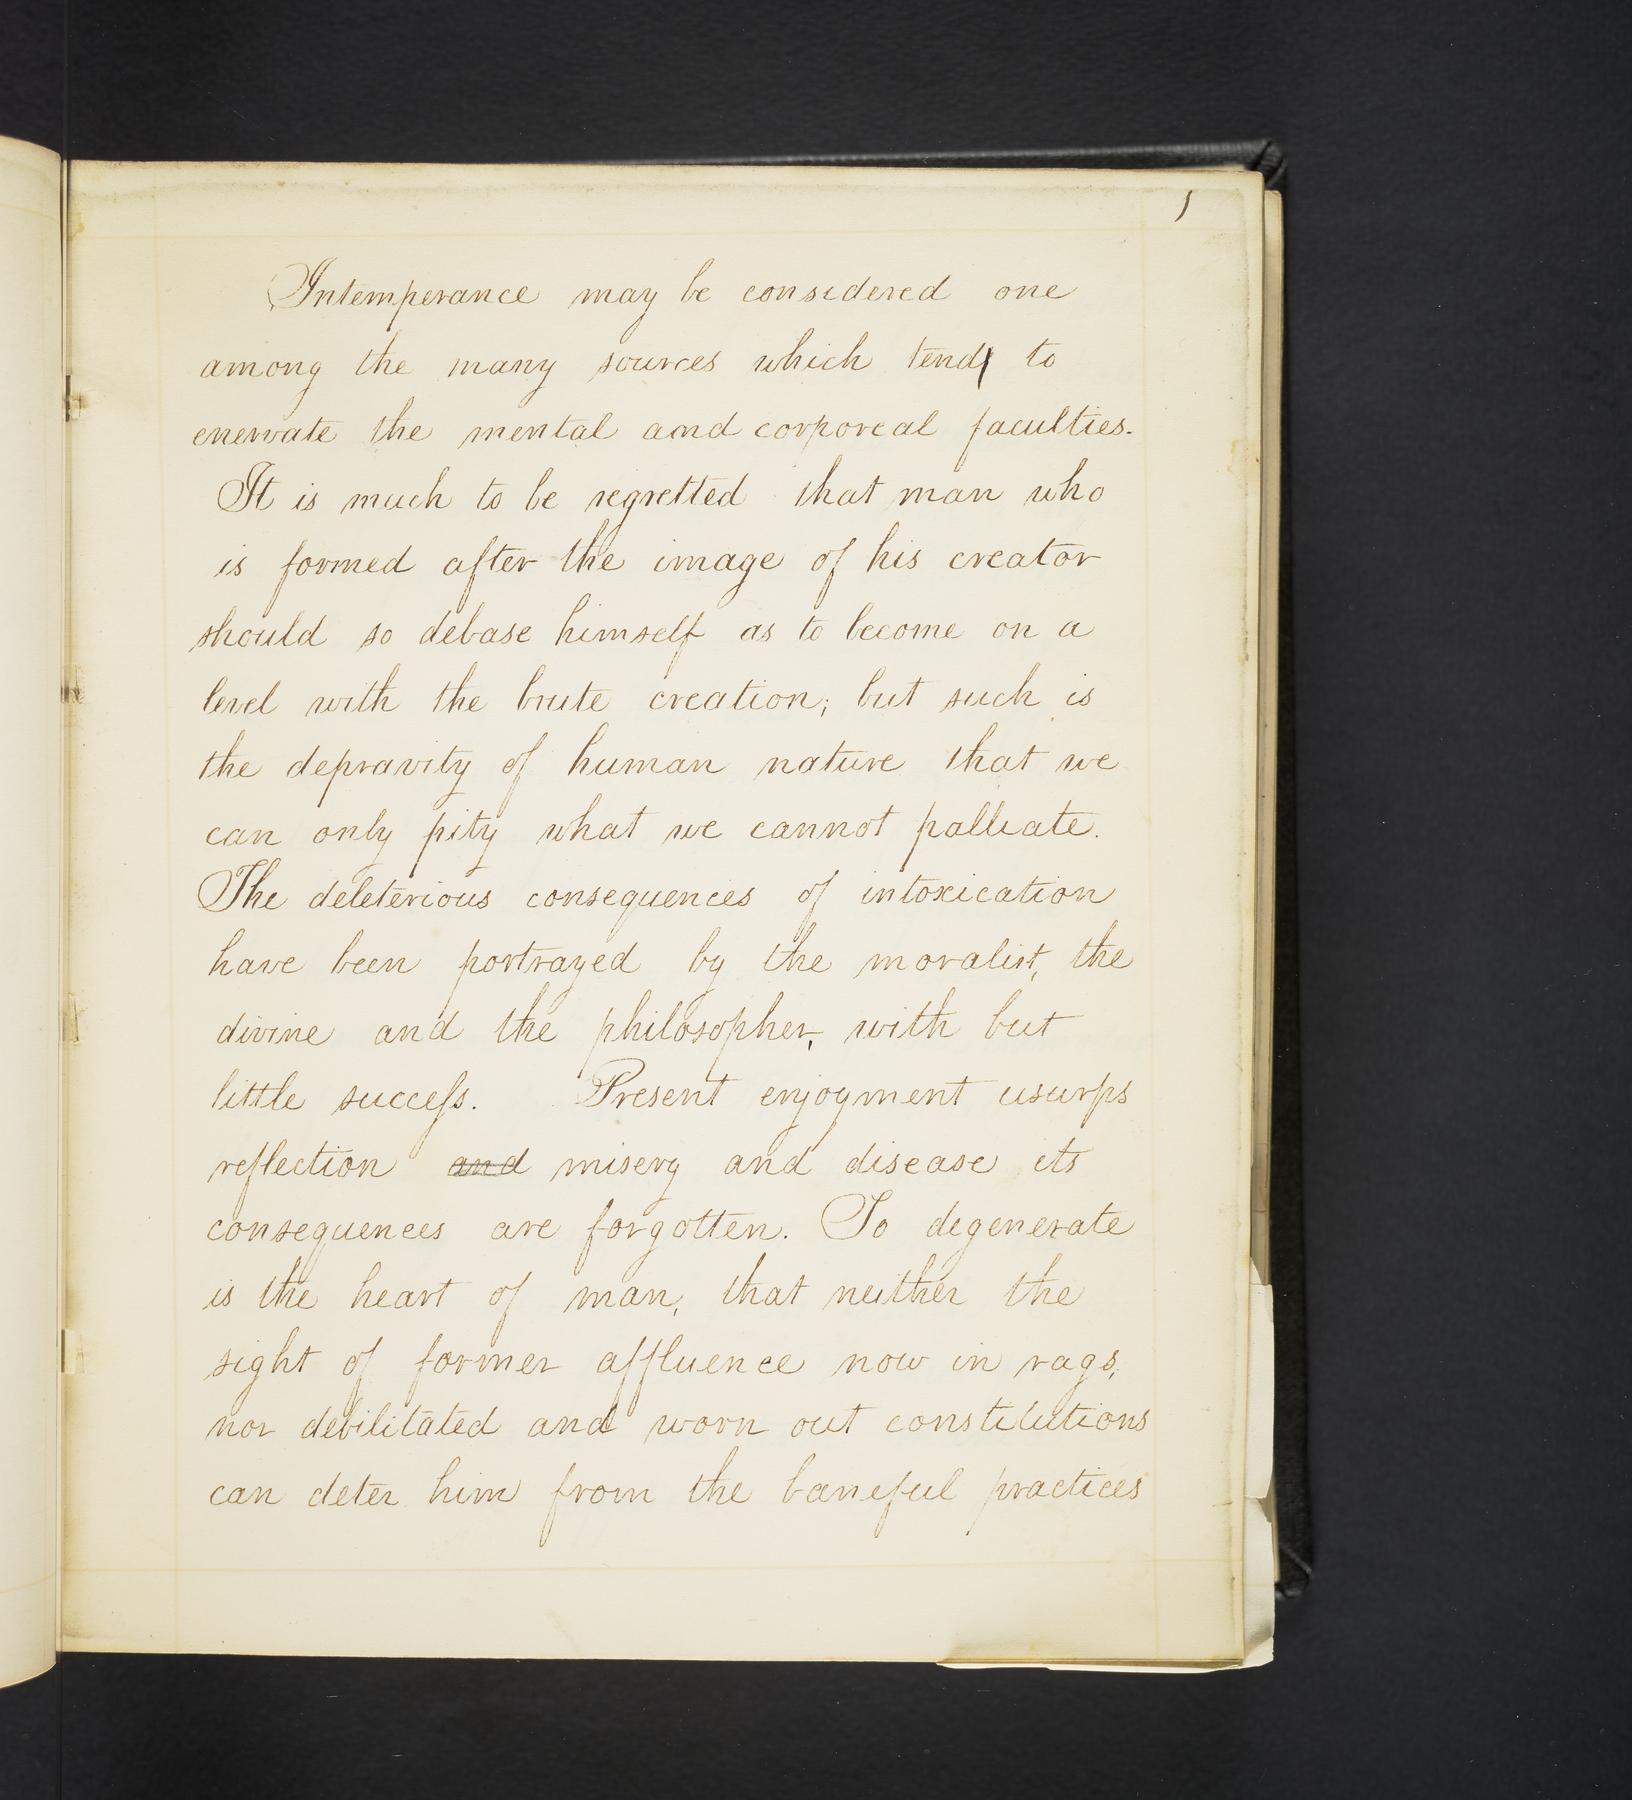 1
Intemperance may be considered one
among the many sources which tend to
enervate the mental and corporeal faculties.
It is much to be regretted that man who
is formed after the image of his creator
should so debase himself as to become on a
level with the brute creation; but such is
the depravity of human nature that we
can only pity what we cannot palliate.
The deleterious consequences of intoxication
have been portrayed by the moralist, the
divine and the philosopher, with but
little succeſs. Present enjoyment usurps
reflection and misery and disease its
consequences are forgotten. So degenerate
is the heart of man, that neither the
sight of former affluence now in rags,
nor debilitated and worn out constitutions
can deter him from the baneful practices